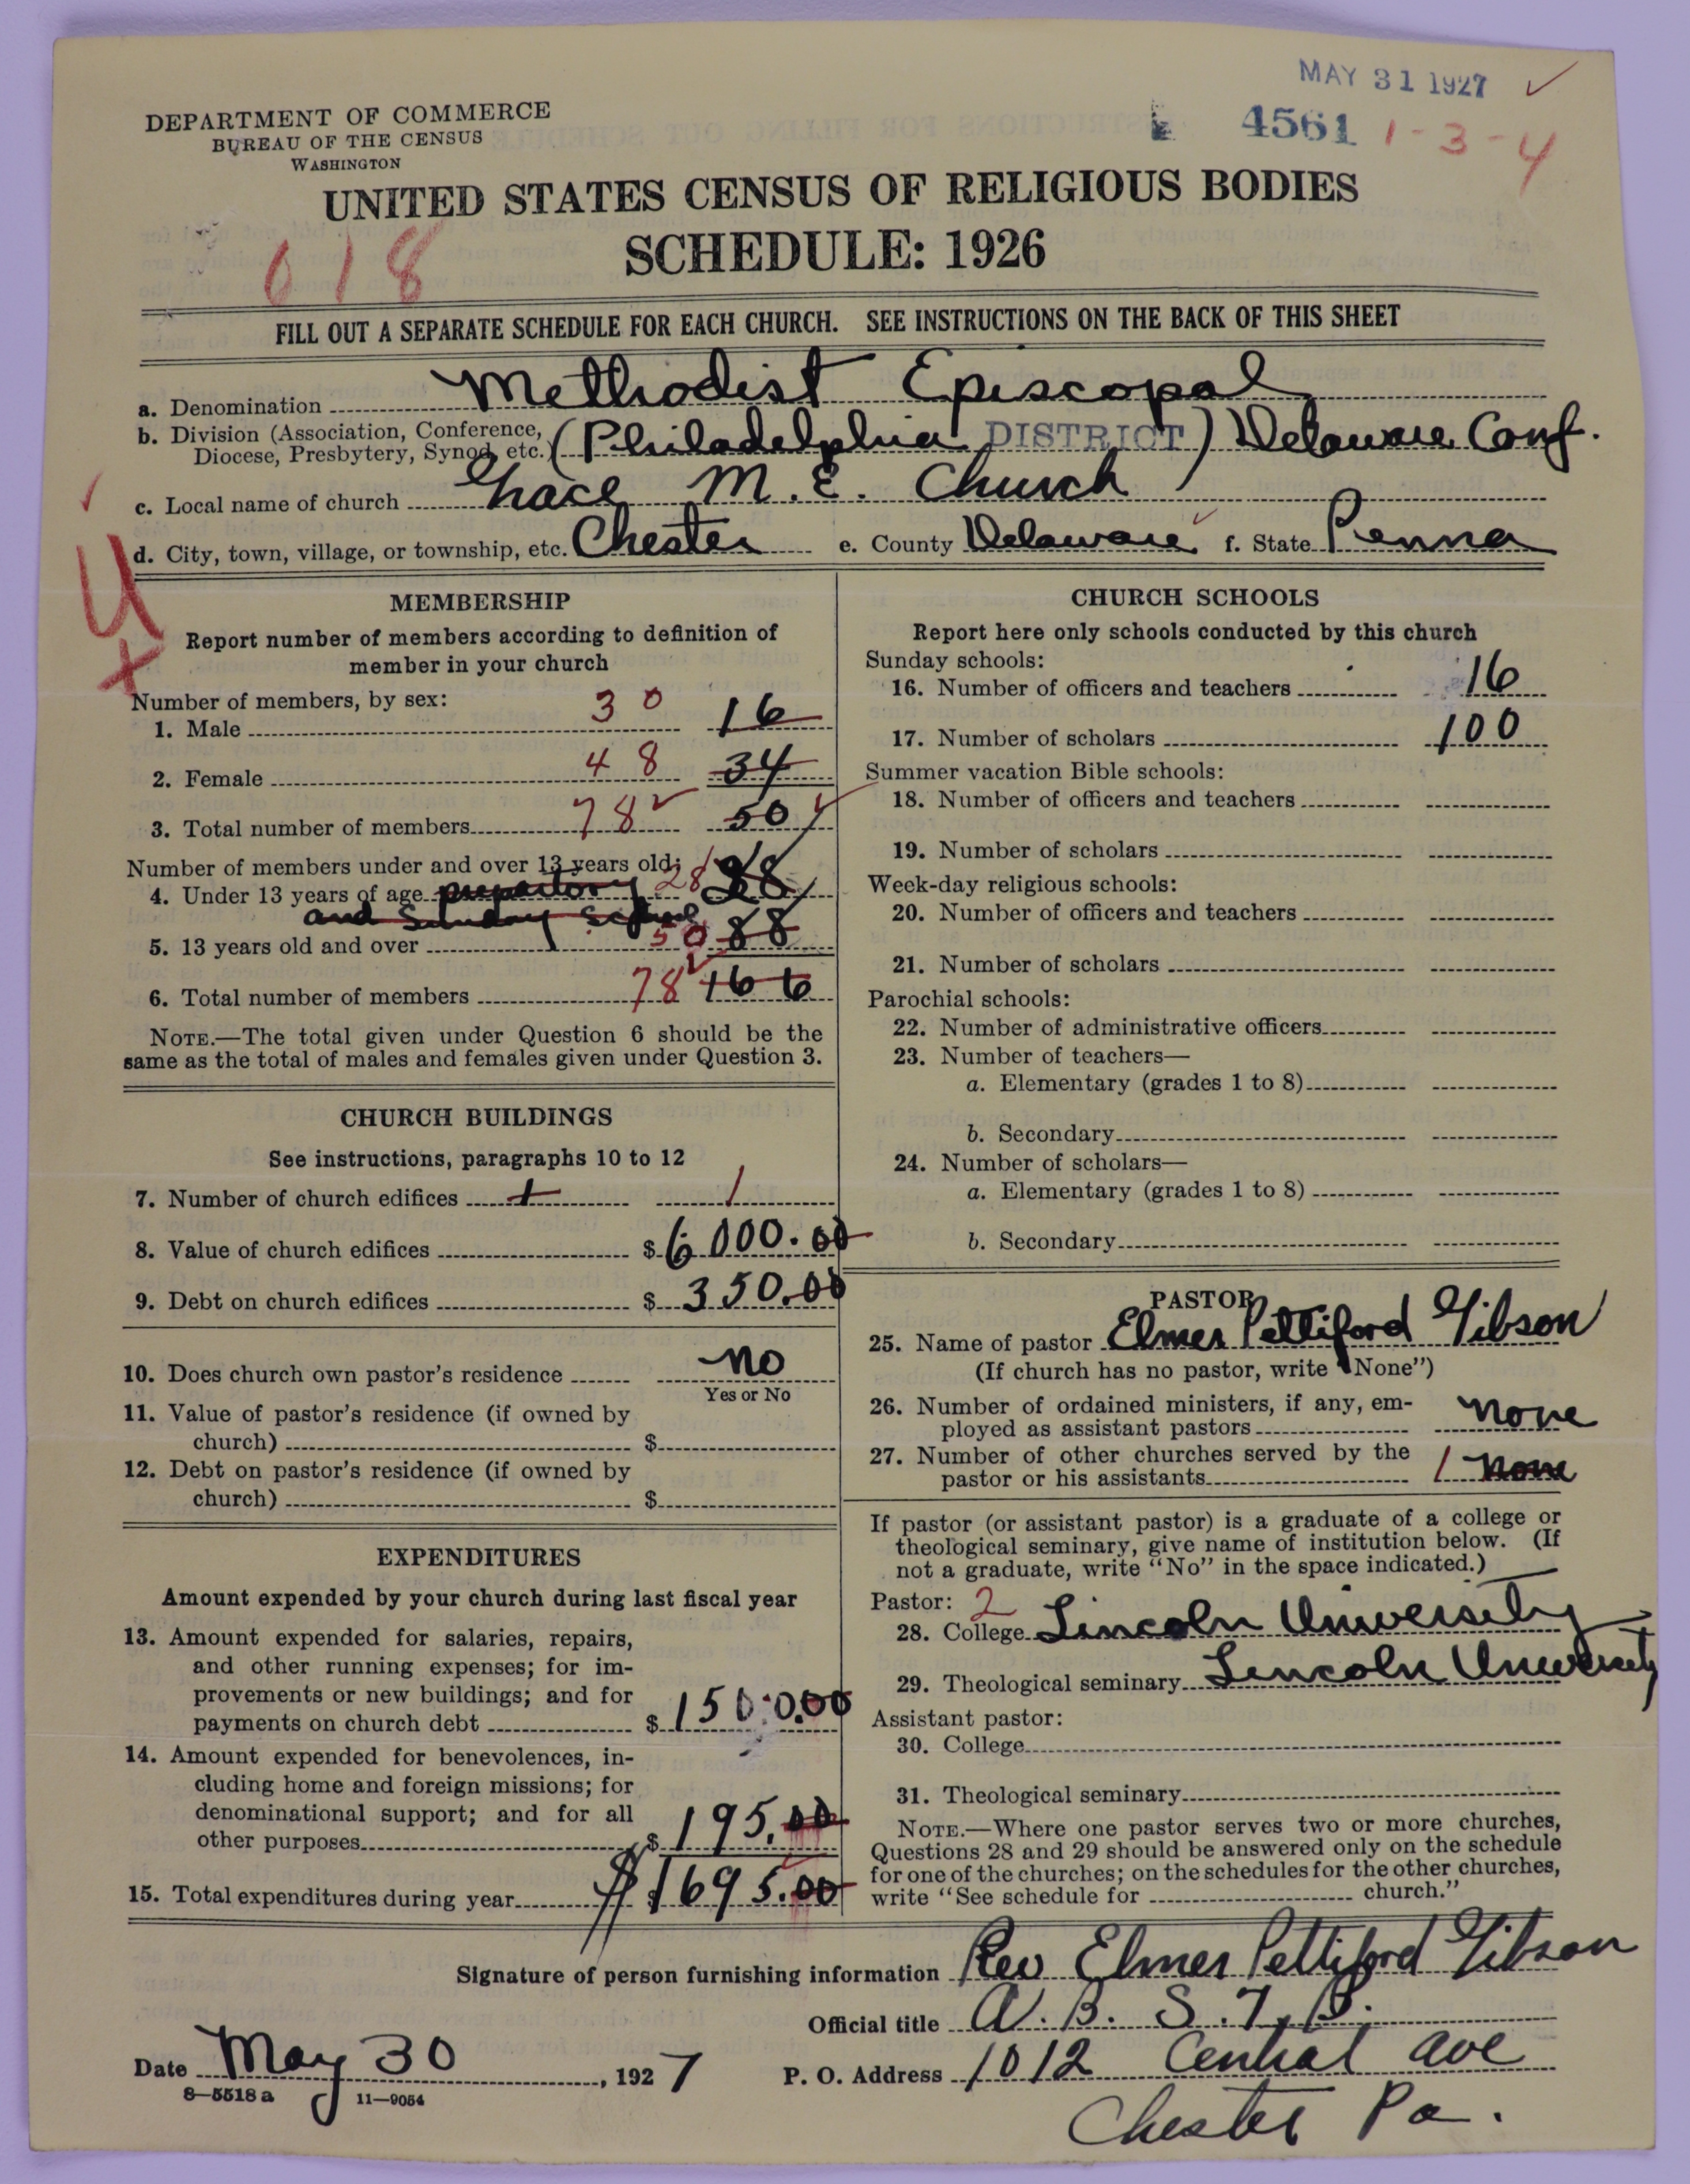 MAY 31 1927 ✓
DEPARTMENT OF COMMERCE
BUREAU OF THE CENSUS
WASHINGTON
4561 1-3-4
UNITED STATES CENSUS OF RELIGIOUS BODIES
SCHEDULE: 1926
618
FILL OUT A SEPARATE SCHEDULE FOR EACH CHURCH. SEE INSTRUCTIONS ON THE BACK OF THIS SHEET
a. Denomination Methodist Episcopal
b. Division (Association, Conference, Diocese, Presbytery, Synod, etc.) (Philadelphia DISTRICT) Delaware Conf.
c. Local name of church Grace M. E. Church
d. City, town, village, or township, etc. Chester e. County Delaware f. State Penna
MEMBERSHIP
Report number of members according to definition of
member in your church
Number of members, by sex:
1. Male 30 16
2. Female 48 34
3. Total number of members 78 50
Number of members under and over 13 years old:
4. Under 13 years of age prepartory 28 28
and Sunday School
5. 13 years old and over 50 88
6. Total number of members 78 166
NOTE.—The total given under Question 6 should be the
same as the total of males and females given under Question 3.
CHURCH BUILDINGS
See instructions, paragraphs 10 to 12
7. Number of church edifices 1 1
8. Value of church edifices $ 6000.00
9. Debt on church edifices $ 350.00
10. Does church own pastor's residence No
Yes or No
11. Value of pastor's residence (if owned by
church) $
12. Debt on pastor's residence (if owned by
church) $
EXPENDITURES
Amount expended by your church during last fiscal year
13. Amount expended for salaries, repairs,
and other running expenses; for im-
provements or new buildings; and for
payments on church debt $ 1500.00
14. Amount expended for benevolences, in-
cluding home and foreign missions; for
denominational support; and for all
other purposes $ 195.00
15. Total expenditures during year $ 1695.00
CHURCH SCHOOLS
Report here only schools conducted by this church
Sunday schools:
16. Number of officers and teachers 16
17. Number of scholars 100
Summer vacation Bible schools:
18. Number of officers and teachers
19. Number of scholars
Week-day religious schools:
20. Number of officers and teachers
21. Number of scholars
Parochial schools:
22. Number of administrative officers
23. Number of teachers—
a. Elementary (grades 1 to 8)
b. Secondary
24. Number of scholars—
a. Elementary (grades 1 to 8)
b. Secondary
PASTOR
25. Name of pastor Elmer Pettiford Gibson
(If church has no pastor, write "None")
26. Number of ordained ministers, if any, em-
ployed as assistant pastors none
27. Number of other churches served by the
pastor or his assistants 1 none
If pastor (or assistant pastor) is a graduate of a college or
theological seminary, give name of institution below. (If
not a graduate, write "No" in the space indicated.)
Pastor: 2
28. College Lincoln University
29. Theological seminary Lincoln University
Assistant pastor:
30. College
31. Theological seminary
NOTE.—Where one pastor serves two or more churches,
Questions 28 and 29 should be answered only on the schedule
for one of the churches; on the schedules for the other churches,
write "See schedule for church."
Signature of person furnishing information Rev Elmer Pettiford Gibson
Official title A. B. S. T. B.
Date May 30, 1927 P. O. Address 1012 Central Ave
8—5518a 11—9054
Chester Pa.